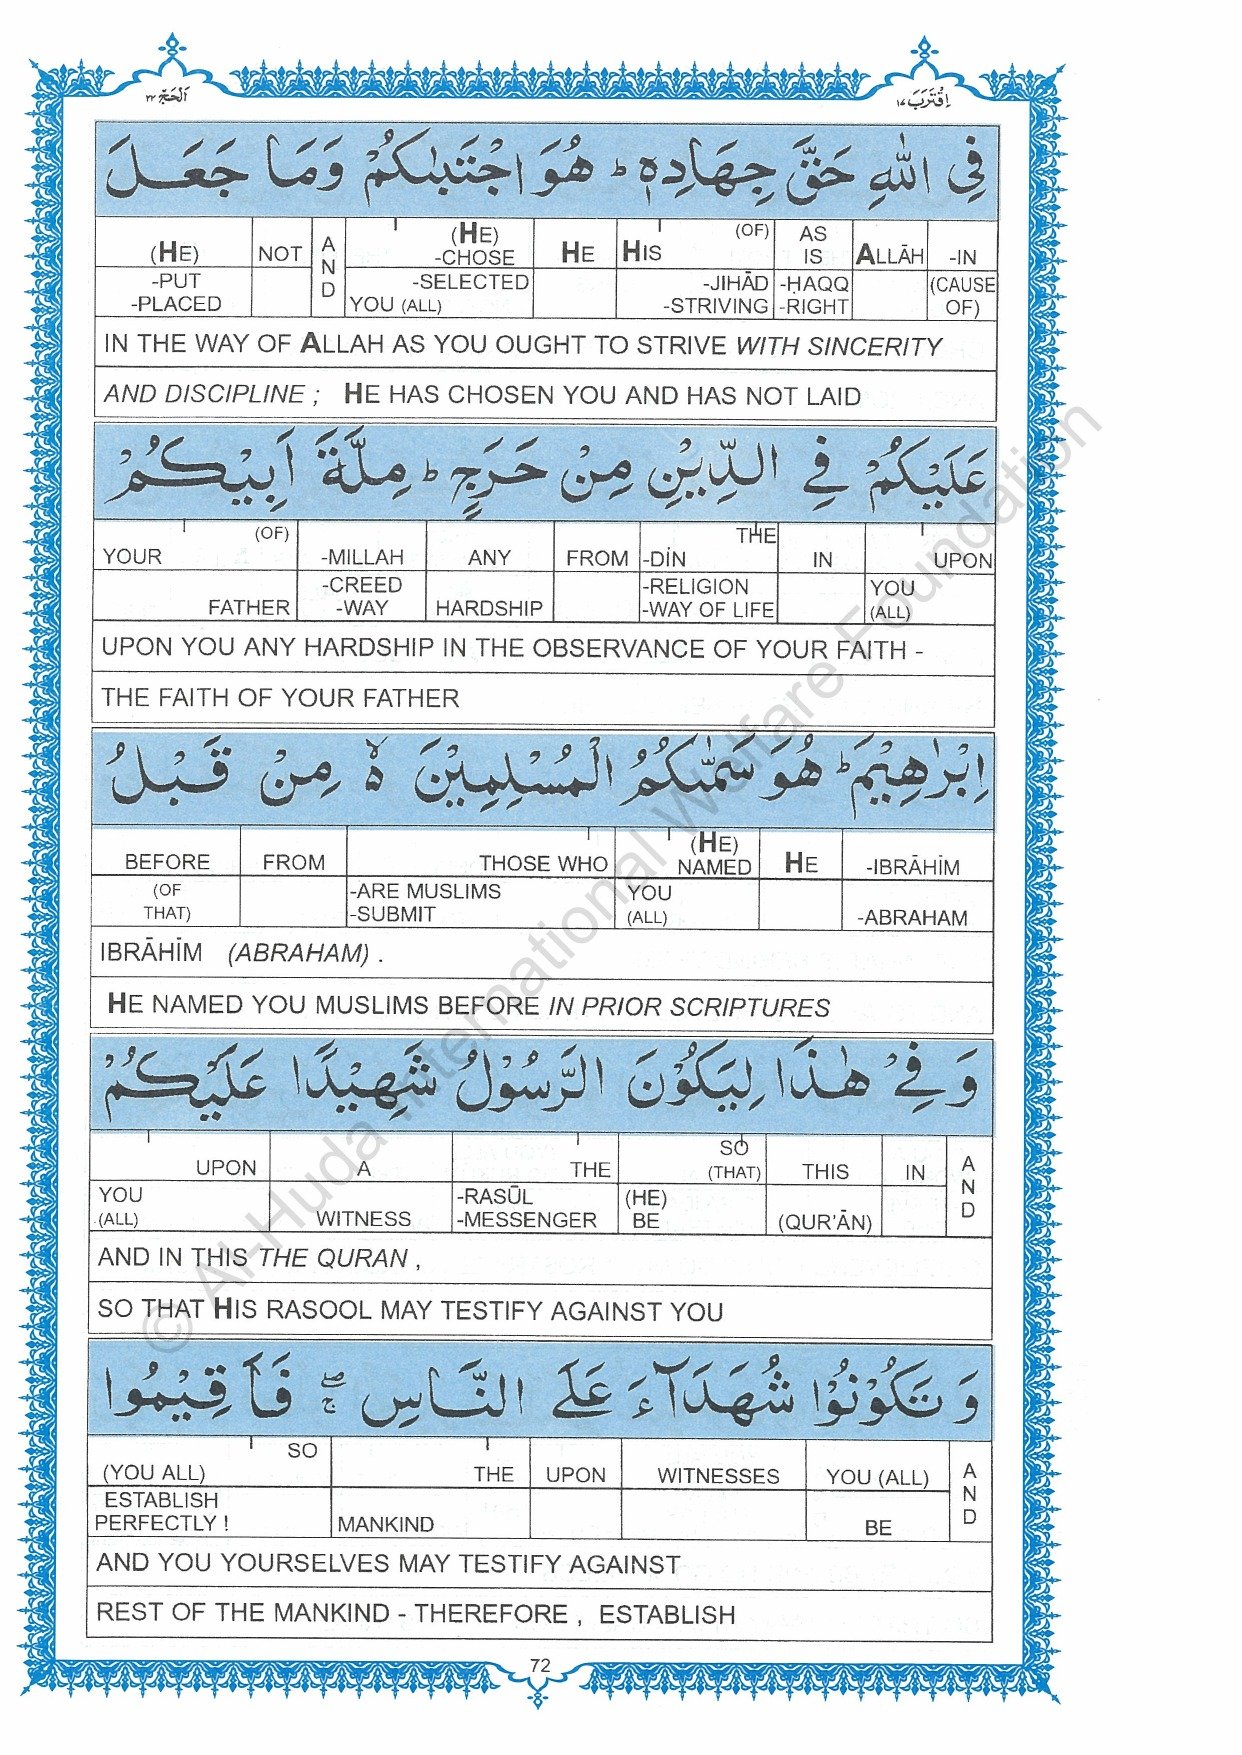 اَلْحَجّ ٢٢
اِقْتَرَبَ ١٧
فِى اللّٰهِ حَقَّ جِهَادِهٖ ؕ هُوَ اجْتَبٰىكُمْ وَمَا جَعَلَ
(HE) NOT AND (HE) -CHOSE HE HIS (OF) AS IS ALLĀH -IN
-PUT -PLACED -SELECTED YOU (ALL) -JIHĀD -STRIVING -ḤAQQ -RIGHT (CAUSE OF)
IN THE WAY OF ALLAH AS YOU OUGHT TO STRIVE WITH SINCERITY
AND DISCIPLINE ; HE HAS CHOSEN YOU AND HAS NOT LAID
عَلَيْكُمْ فِى الدِّيْنِ مِنْ حَرَجٍ ؕ مِلَّةَ اَبِيْكُمْ
YOUR (OF) -MILLAH ANY FROM THE -DİN IN UPON
FATHER -CREED -WAY HARDSHIP -RELIGION -WAY OF LIFE YOU (ALL)
UPON YOU ANY HARDSHIP IN THE OBSERVANCE OF YOUR FAITH -
THE FAITH OF YOUR FATHER
اِبْرٰهِيْمَ ؕ هُوَ سَمّٰىكُمُ الْمُسْلِمِيْنَ ۙ۬ مِنْ قَبْلُ
BEFORE FROM THOSE WHO (HE) NAMED HE -IBRĀHİM
(OF THAT) -ARE MUSLIMS -SUBMIT YOU (ALL) -ABRAHAM
IBRĀHİM (ABRAHAM) .
HE NAMED YOU MUSLIMS BEFORE IN PRIOR SCRIPTURES
وَ فِىْ هٰذَا لِيَكُوْنَ الرَّسُوْلُ شَهِيْدًا عَلَيْكُمْ
UPON A THE SO (THAT) THIS IN AND
YOU (ALL) WITNESS -RASŪL -MESSENGER (HE) BE (QUR'ĀN)
AND IN THIS THE QURAN ,
SO THAT HIS RASOOL MAY TESTIFY AGAINST YOU
وَ تَكُوْنُوْا شُهَدَآءَ عَلَى النَّاسِ ۖۚ فَاَقِيْمُوا
(YOU ALL) SO THE UPON WITNESSES YOU (ALL) AND
ESTABLISH PERFECTLY ! MANKIND BE
AND YOU YOURSELVES MAY TESTIFY AGAINST
REST OF THE MANKIND - THEREFORE , ESTABLISH
72
© Al-Huda International Welfare Foundation